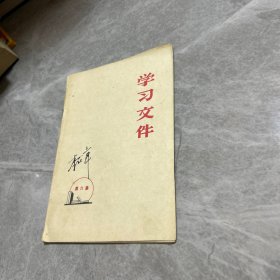 学习文件
第六册